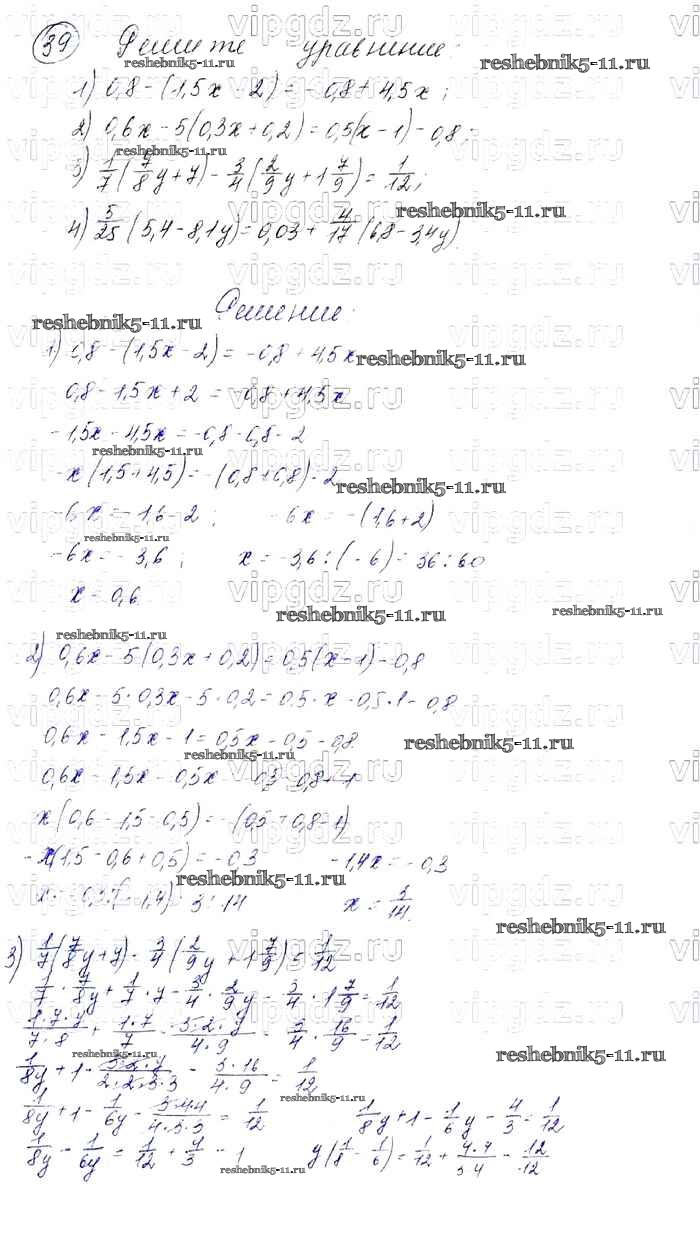 39 Решите уравнение:
1) 0,8 - (1,5x - 2) = -0,8 + 4,5x;
2) 0,6x - 5(0,3x + 0,2) = 0,5(x - 1) - 0,8;
3) 1/7 (7/8 y + 7) - 3/4 (2/9 y + 1 7/9) = 1/12;
4) 5/25 (5,4 - 8,1y) = 0,03 + 4/17 (6,8 - 3,4y)
Решение:
1) 0,8 - (1,5x - 2) = -0,8 + 4,5x
0,8 - 1,5x + 2 = -0,8 + 4,5x
-1,5x - 4,5x = -0,8 - 0,8 - 2
-x(1,5 + 4,5) = -(0,8 + 0,8) - 2
-6x = -1,6 - 2; -6x = -(1,6 + 2)
-6x = -3,6; x = -3,6 : (-6) = 36 : 60
x = 0,6
2) 0,6x - 5(0,3x + 0,2) = 0,5(x - 1) - 0,8
0,6x - 5·0,3x - 5·0,2 = 0,5·x - 0,5·1 - 0,8
0,6x - 1,5x - 1 = 0,5x - 0,5 - 0,8
0,6x - 1,5x - 0,5x = -0,5 - 0,8 + 1
x(0,6 - 1,5 - 0,5) = -(0,5 + 0,8 - 1)
-x(1,5 - 0,6 + 0,5) = -0,3 -1,4x = -0,3
x = -0,3 : (-1,4) = 3 : 14 x = 3/14.
3) 1/7 (7/8 y + 7) - 3/4 (2/9 y + 1 7/9) = 1/12
1/7 · 7/8y + 1/7 · 7 - 3/4 · 2/9y - 3/4 · 1 7/9 = 1/12
1·7·y/7·8 + 1·7/7 - 3·2·y/4·9 - 3/4 · 16/9 = 1/12
1/8y + 1 - 3·2·y/2·2·3·3 - 3·16/4·9 = 1/12
1/8y + 1 - 1/6y - 3·4·4/4·3·3 = 1/12 1/8y + 1 - 1/6y - 4/3 = 1/12
1/8y - 1/6y = 1/12 + 4/3 - 1 y(1/8 - 1/6) = 1/12 + 4·4/3·4 - 12/12
vipgdz.ru
reshebnik5-11.ru